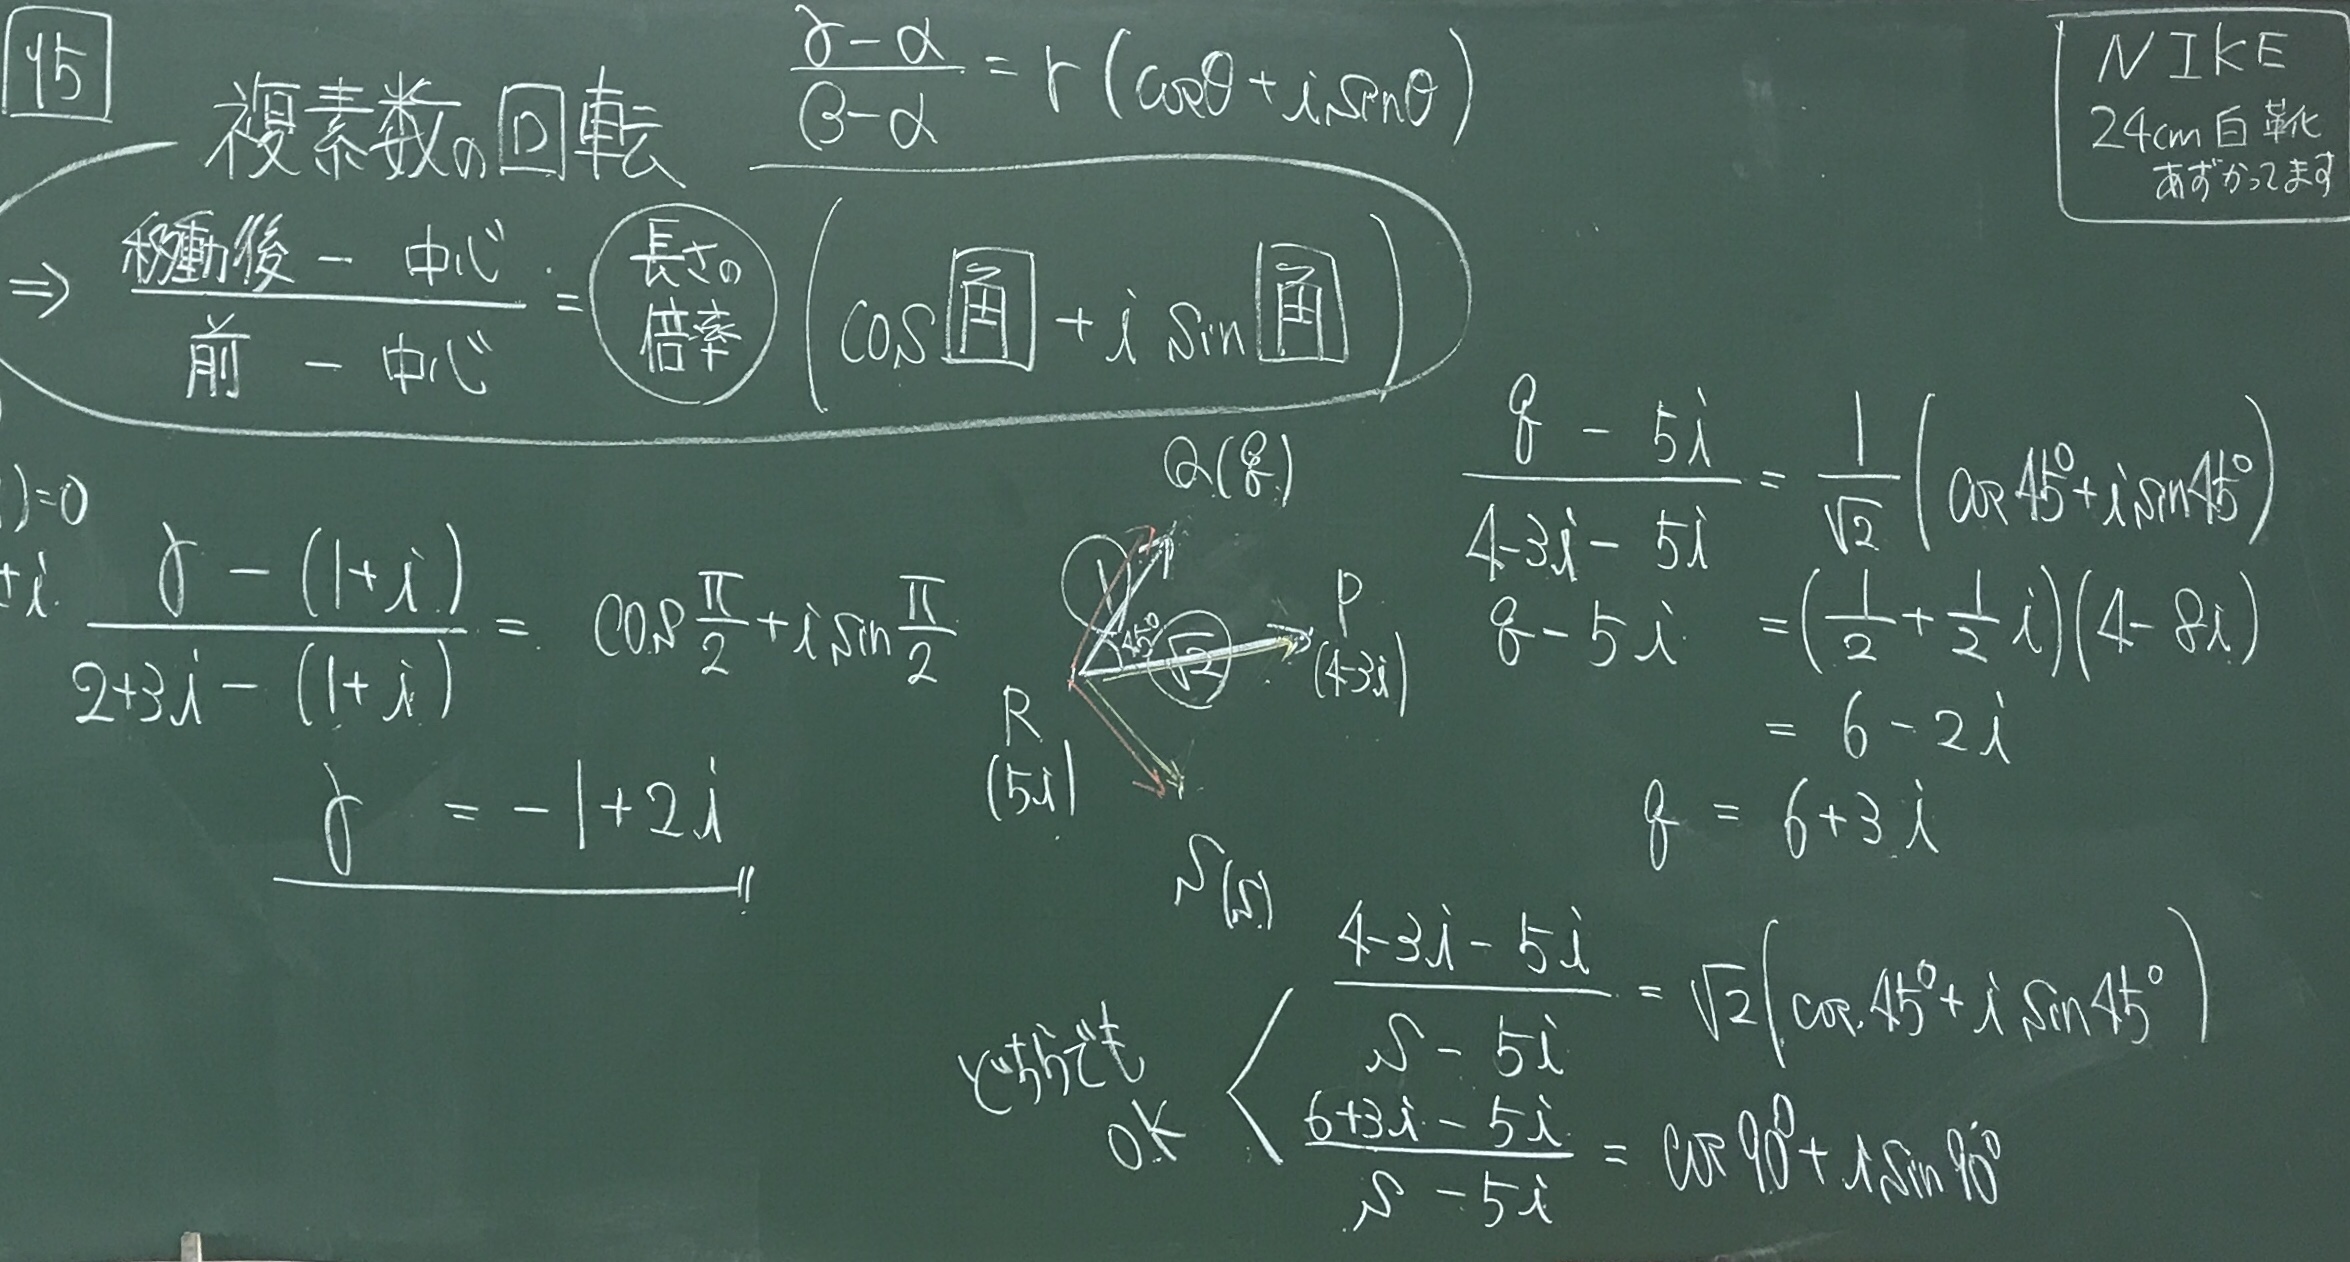 45
複素数の回転
(γ-α)/(β-α) = r(cosθ+i sinθ)
NIKE
24cm白靴
あずかってます
⇒ (移動後 - 中心)/(前 - 中心) = 長さの倍率 (cos角 + i sin角)
)=0
+i
(γ-(1+i))/(2+3i-(1+i)) = cos π/2 + i sin π/2
γ = -1+2i
Q(q)
1
45°
√2
P
(4-3i)
R
(5i)
S(s)
(q - 5i)/(4-3i-5i) = 1/√2 (cos45°+i sin45°)
q-5i = (1/2+1/2 i)(4-8i)
= 6-2i
q = 6+3i
どちらでも
OK
(4-3i-5i)/(s-5i) = √2(cos45°+i sin45°)
(6+3i-5i)/(s-5i) = cos90°+i sin90°